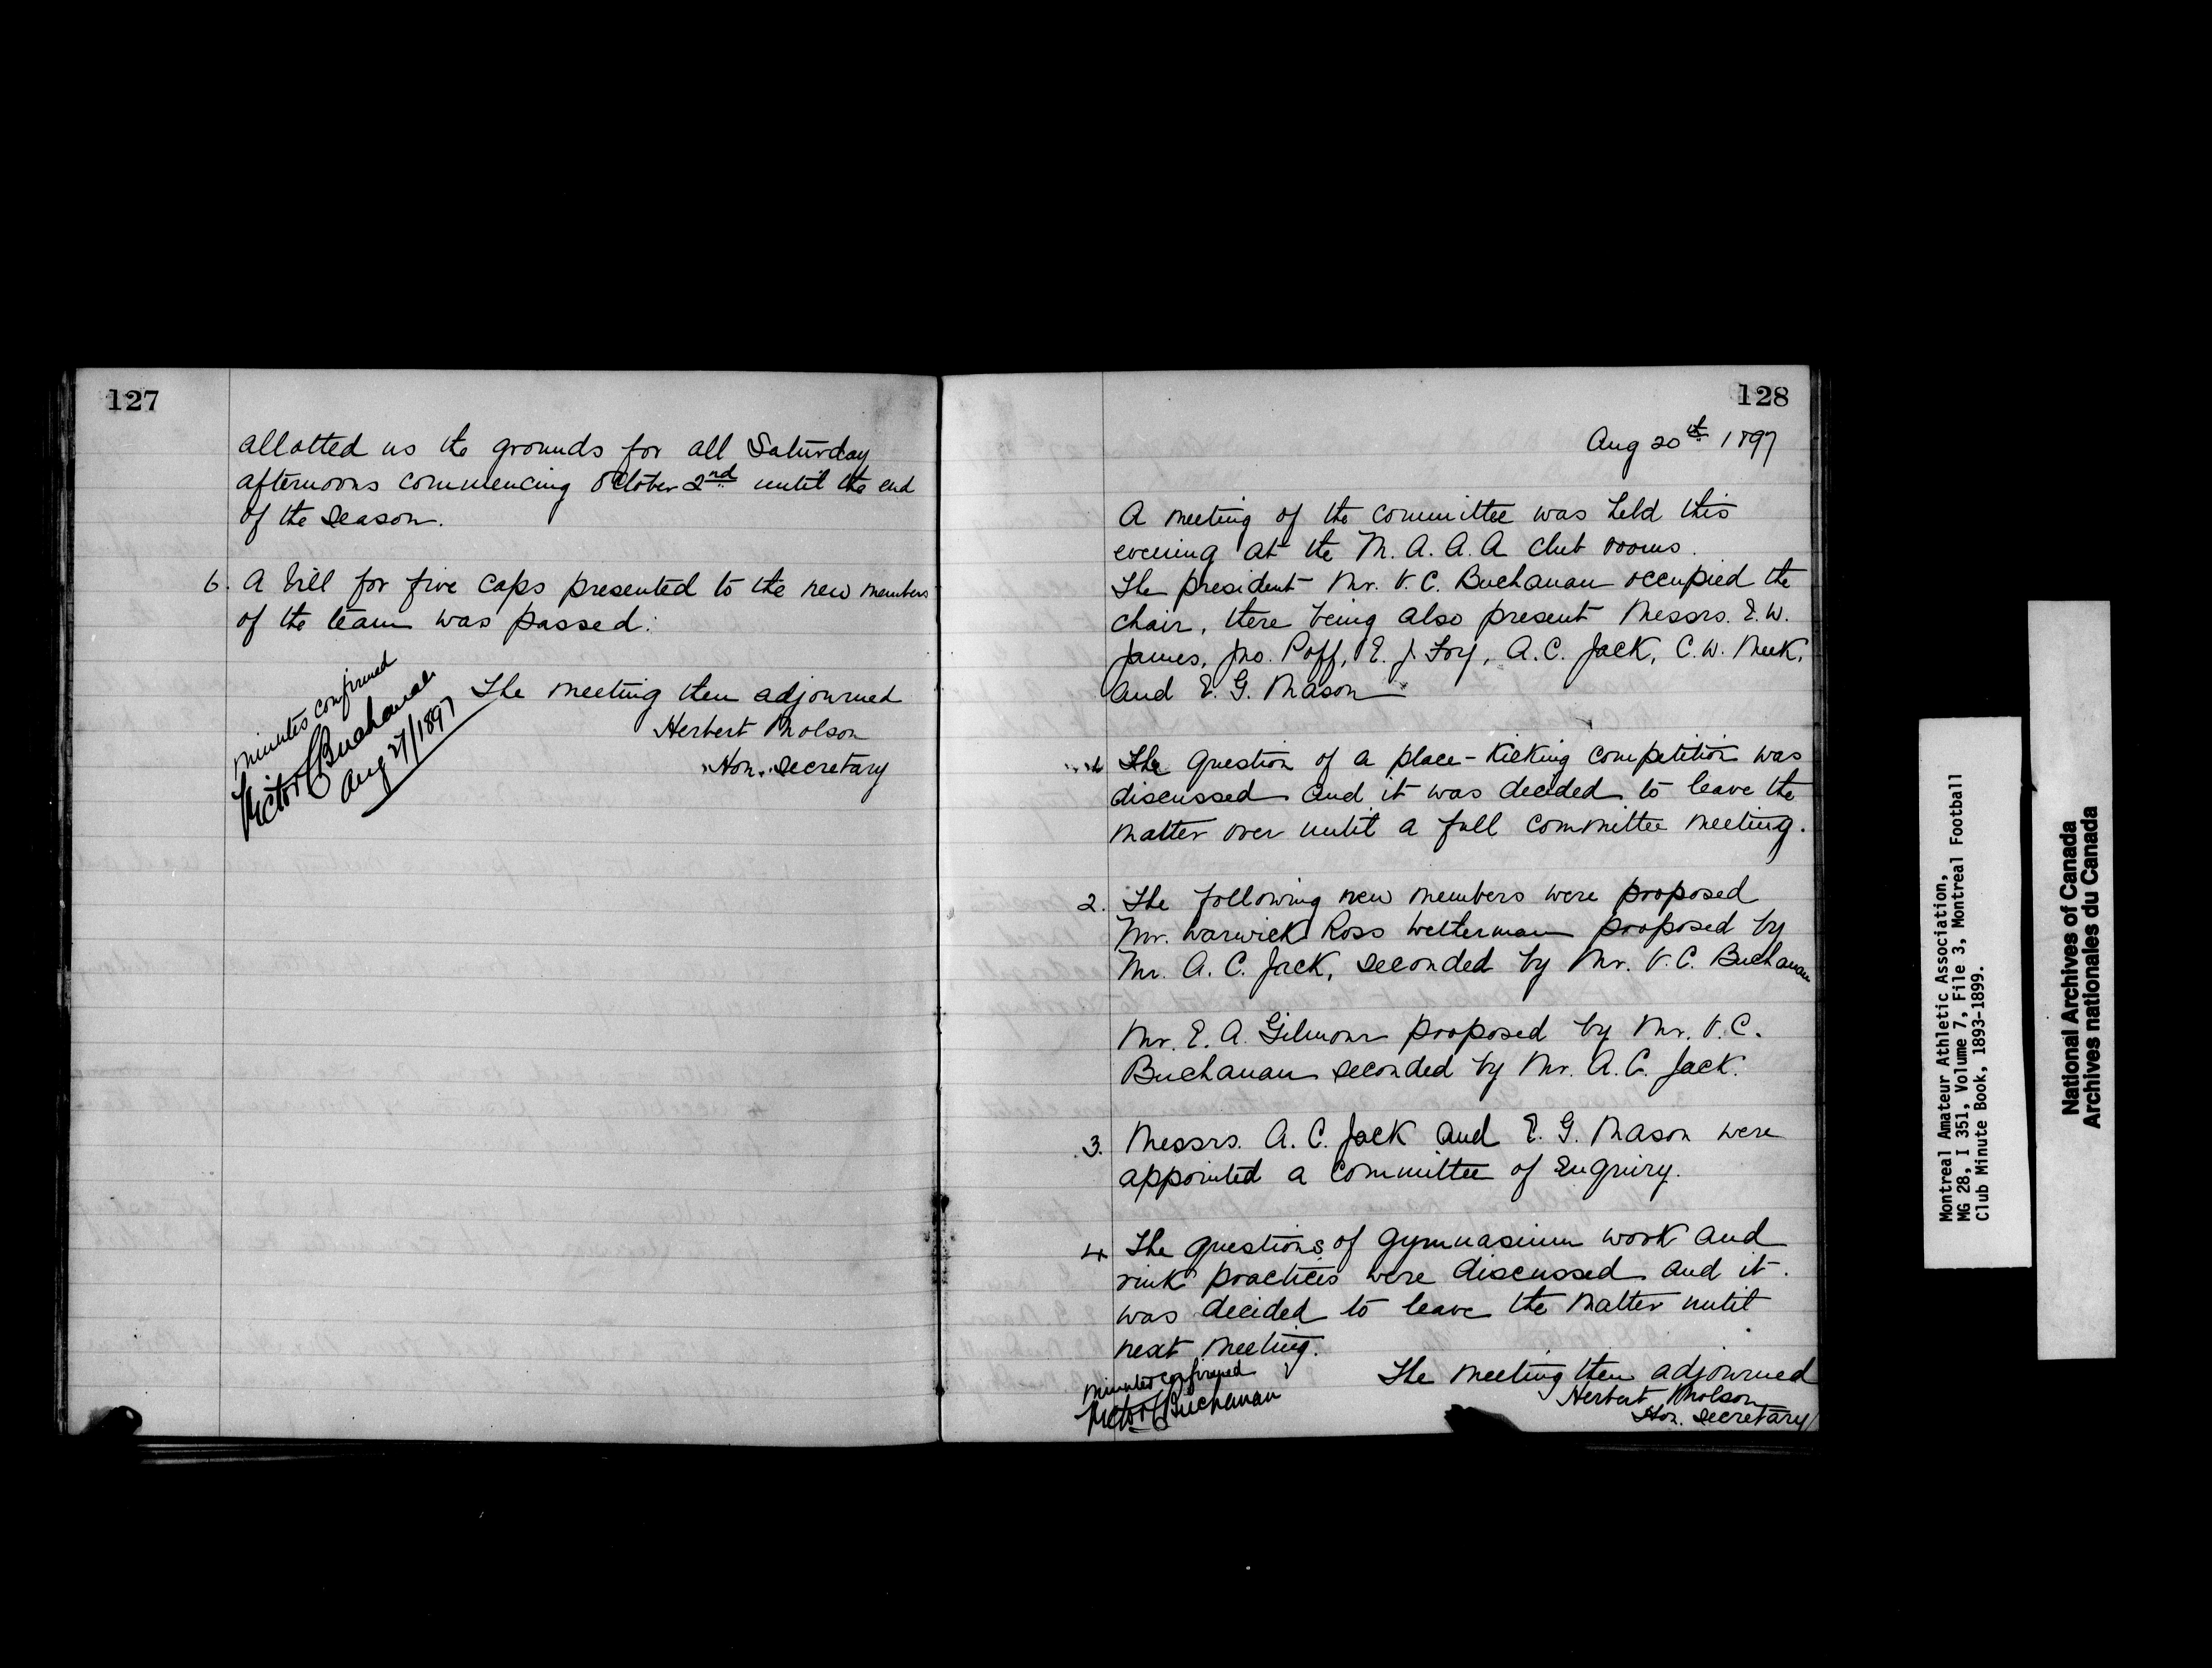 127
allotted us the grounds for all Saturday
afternoons commencing October 2nd until the end
of the season.
6. A bill for five caps presented to the new members
of the team was passed.
The meeting then adjourned
Herbert Molson
Hon. Secretary
Minutes confirmed
Victor C Buchanan
Aug 27/1897
128
Aug 20th 1897
A meeting of the committee was held this
evening at the M. A. A. A club rooms.
The president Mr. V. C. Buchanan occupied the
chair, there being also present Messrs. E. W.
James, Jno. Poff, E. J. Fry, A. C. Jack, C. W. Meek,
and E. G. Mason
1. The question of a place-kicking competition was
discussed and it was decided to leave the
matter over until a full committee meeting.
2. The following new members were proposed
Mr. Warwick Ross Welterman proposed by
Mr. A. C. Jack, seconded by Mr. V. C. Buchanan
Mr. E. A. Gilmour proposed by Mr. V. C.
Buchanan seconded by Mr. A. C. Jack.
3. Messrs. A. C. Jack and E. G. Mason were
appointed a committee of Enquiry.
4 The questions of gymnasium work and
rink practices were discussed and it
was decided to leave the matter until
next meeting.
The meeting then adjourned
Herbert Molson
Hon. Secretary
Minutes confirmed
Victor C Buchanan
Montreal Amateur Athletic Association,
MG 28, I 351, Volume 7, File 3, Montreal Football
Club Minute Book, 1893-1899.
National Archives of Canada
Archives nationales du Canada